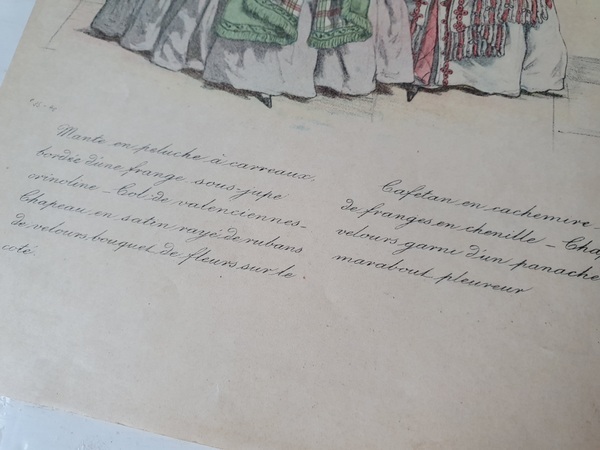 Mante en peluche à carreaux,
bordée d'une frange - sous-jupe
crinoline - Col de valenciennes -
Chapeau en satin rayé de rubans
de velours, bouquet de fleurs sur le
coté.
Cafetan en cachemire
de franges en chenille -
velours garni d'un panache
marabout pleureur